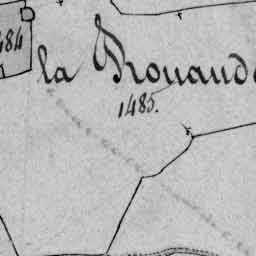 484
la Rouaud
1485.